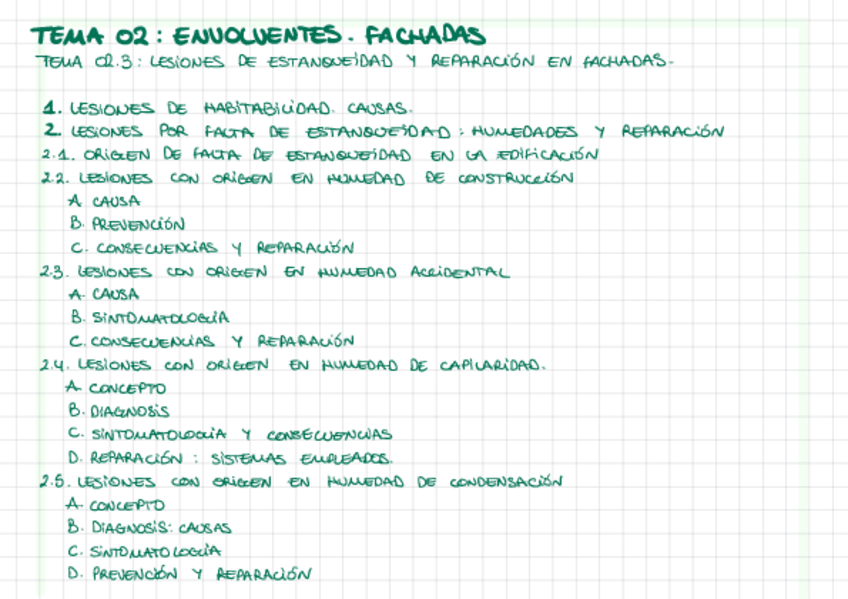 TEMA 02: ENVOLVENTES. FACHADAS
TEMA 02.3: LESIONES DE ESTANQUEÏDAD Y REPARACIÓN EN FACHADAS.
1. LESIONES DE HABITABILIDAD. CAUSAS.
2. LESIONES POR FALTA DE ESTANQUEÏDAD: HUMEDADES Y REPARACIÓN
2.1. ORIGEN DE FALTA DE ESTANQUEÏDAD EN LA EDIFICACIÓN
2.2. LESIONES CON ORIGEN EN HUMEDAD DE CONSTRUCCIÓN
A. CAUSA
B. PREVENCIÓN
C. CONSECUENCIAS Y REPARACIÓN
2.3. LESIONES CON ORIGEN EN HUMEDAD ACCIDENTAL
A. CAUSA
B. SINTOMATOLOGÍA
C. CONSECUENCIAS Y REPARACIÓN
2.4. LESIONES CON ORIGEN EN HUMEDAD DE CAPILARIDAD.
A. CONCEPTO
B. DIAGNOSIS
C. SINTOMATOLOGÍA Y CONSECUENCIAS
D. REPARACIÓN: SISTEMAS EMPLEADOS.
2.5. LESIONES CON ORIGEN EN HUMEDAD DE CONDENSACIÓN
A. CONCEPTO
B. DIAGNOSIS: CAUSAS
C. SINTOMATOLOGÍA
D. PREVENCIÓN Y REPARACIÓN